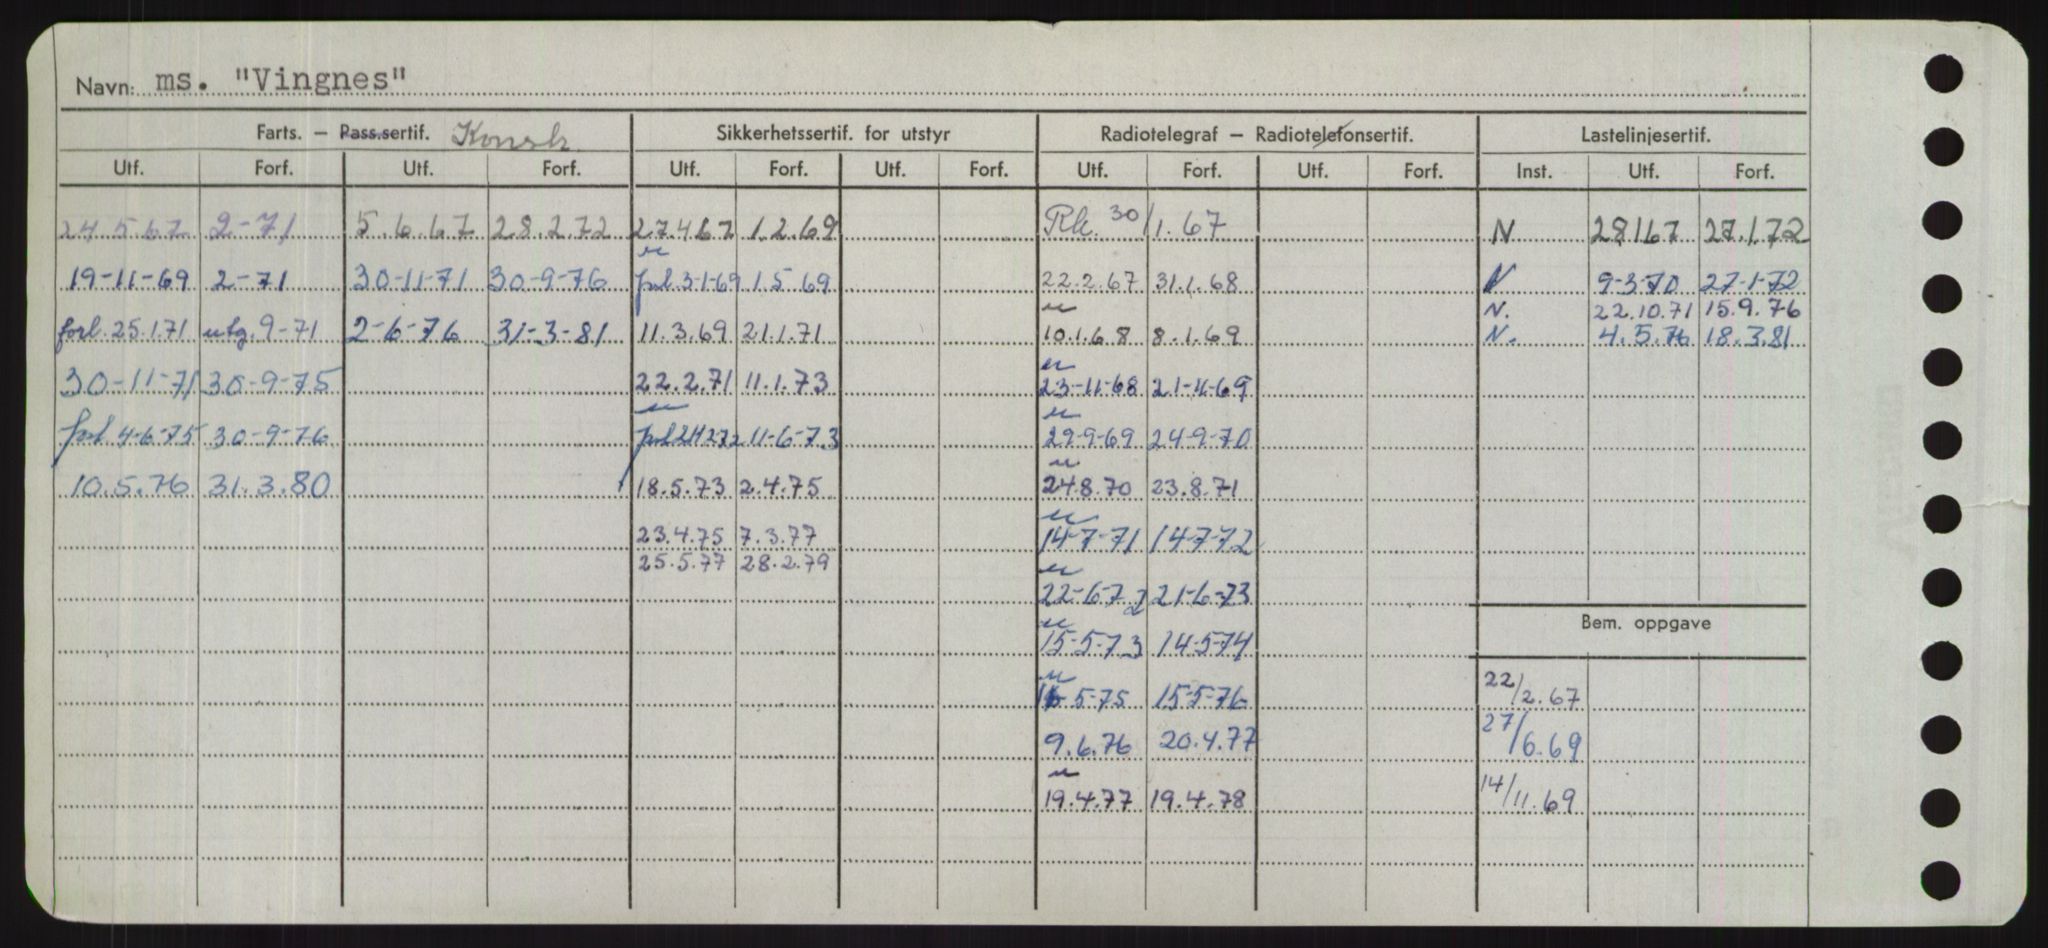 Navn: ms. "Vingnes"
Farts. - Pass.sertif. Konstr. Sikkerhetssertif. for utstyr Radiotelegraf - Radiotelefonsertif. Lastelinjesertif.
Utf. Forf. Utf. Forf. Utf. Forf. Utf. Forf. Utf. Forf. Utf. Forf. Inst. Utf. Forf.
24.5.67 2-71 5.6.67 28.2.72 27.4.67 1.2.69 Rk. 30/1.67 N 28.1.67 27.1.72
19-11-69 2-71 30-11-71 30-9-76 3-1-69 1.5.69 22.2.67 31.1.68 N 9-3-70 27-1-72
N. 22.10.71 15.9.76
forl. 25.1.71 utg. 9-71 2-6-76 31-3-81 11.3.69 21.1.71 10.1.68 8.1.69 N. 4.5.76 18.3.81
30-11-71 30-9-75 22.2.71 11.1.73 23-11-68 21-11-69
forl 4-6-75 30-9-76 11-6-73 29-9-69 24-9-70
10.5.76 31.3.80 18.5.73 2.4.75 24.8.70 23.8.71
23.4.75 7.3.77 14-7-71 14-7-72
25.5.77 28.2.79
22-6-72 21-6-73
Bem. oppgave
15-5-73 14-5-74
5-75 15-5-76 22/2.67
9.6.76 20.4.77 27/6.69
19.4.77 19.4.78 14/11.69